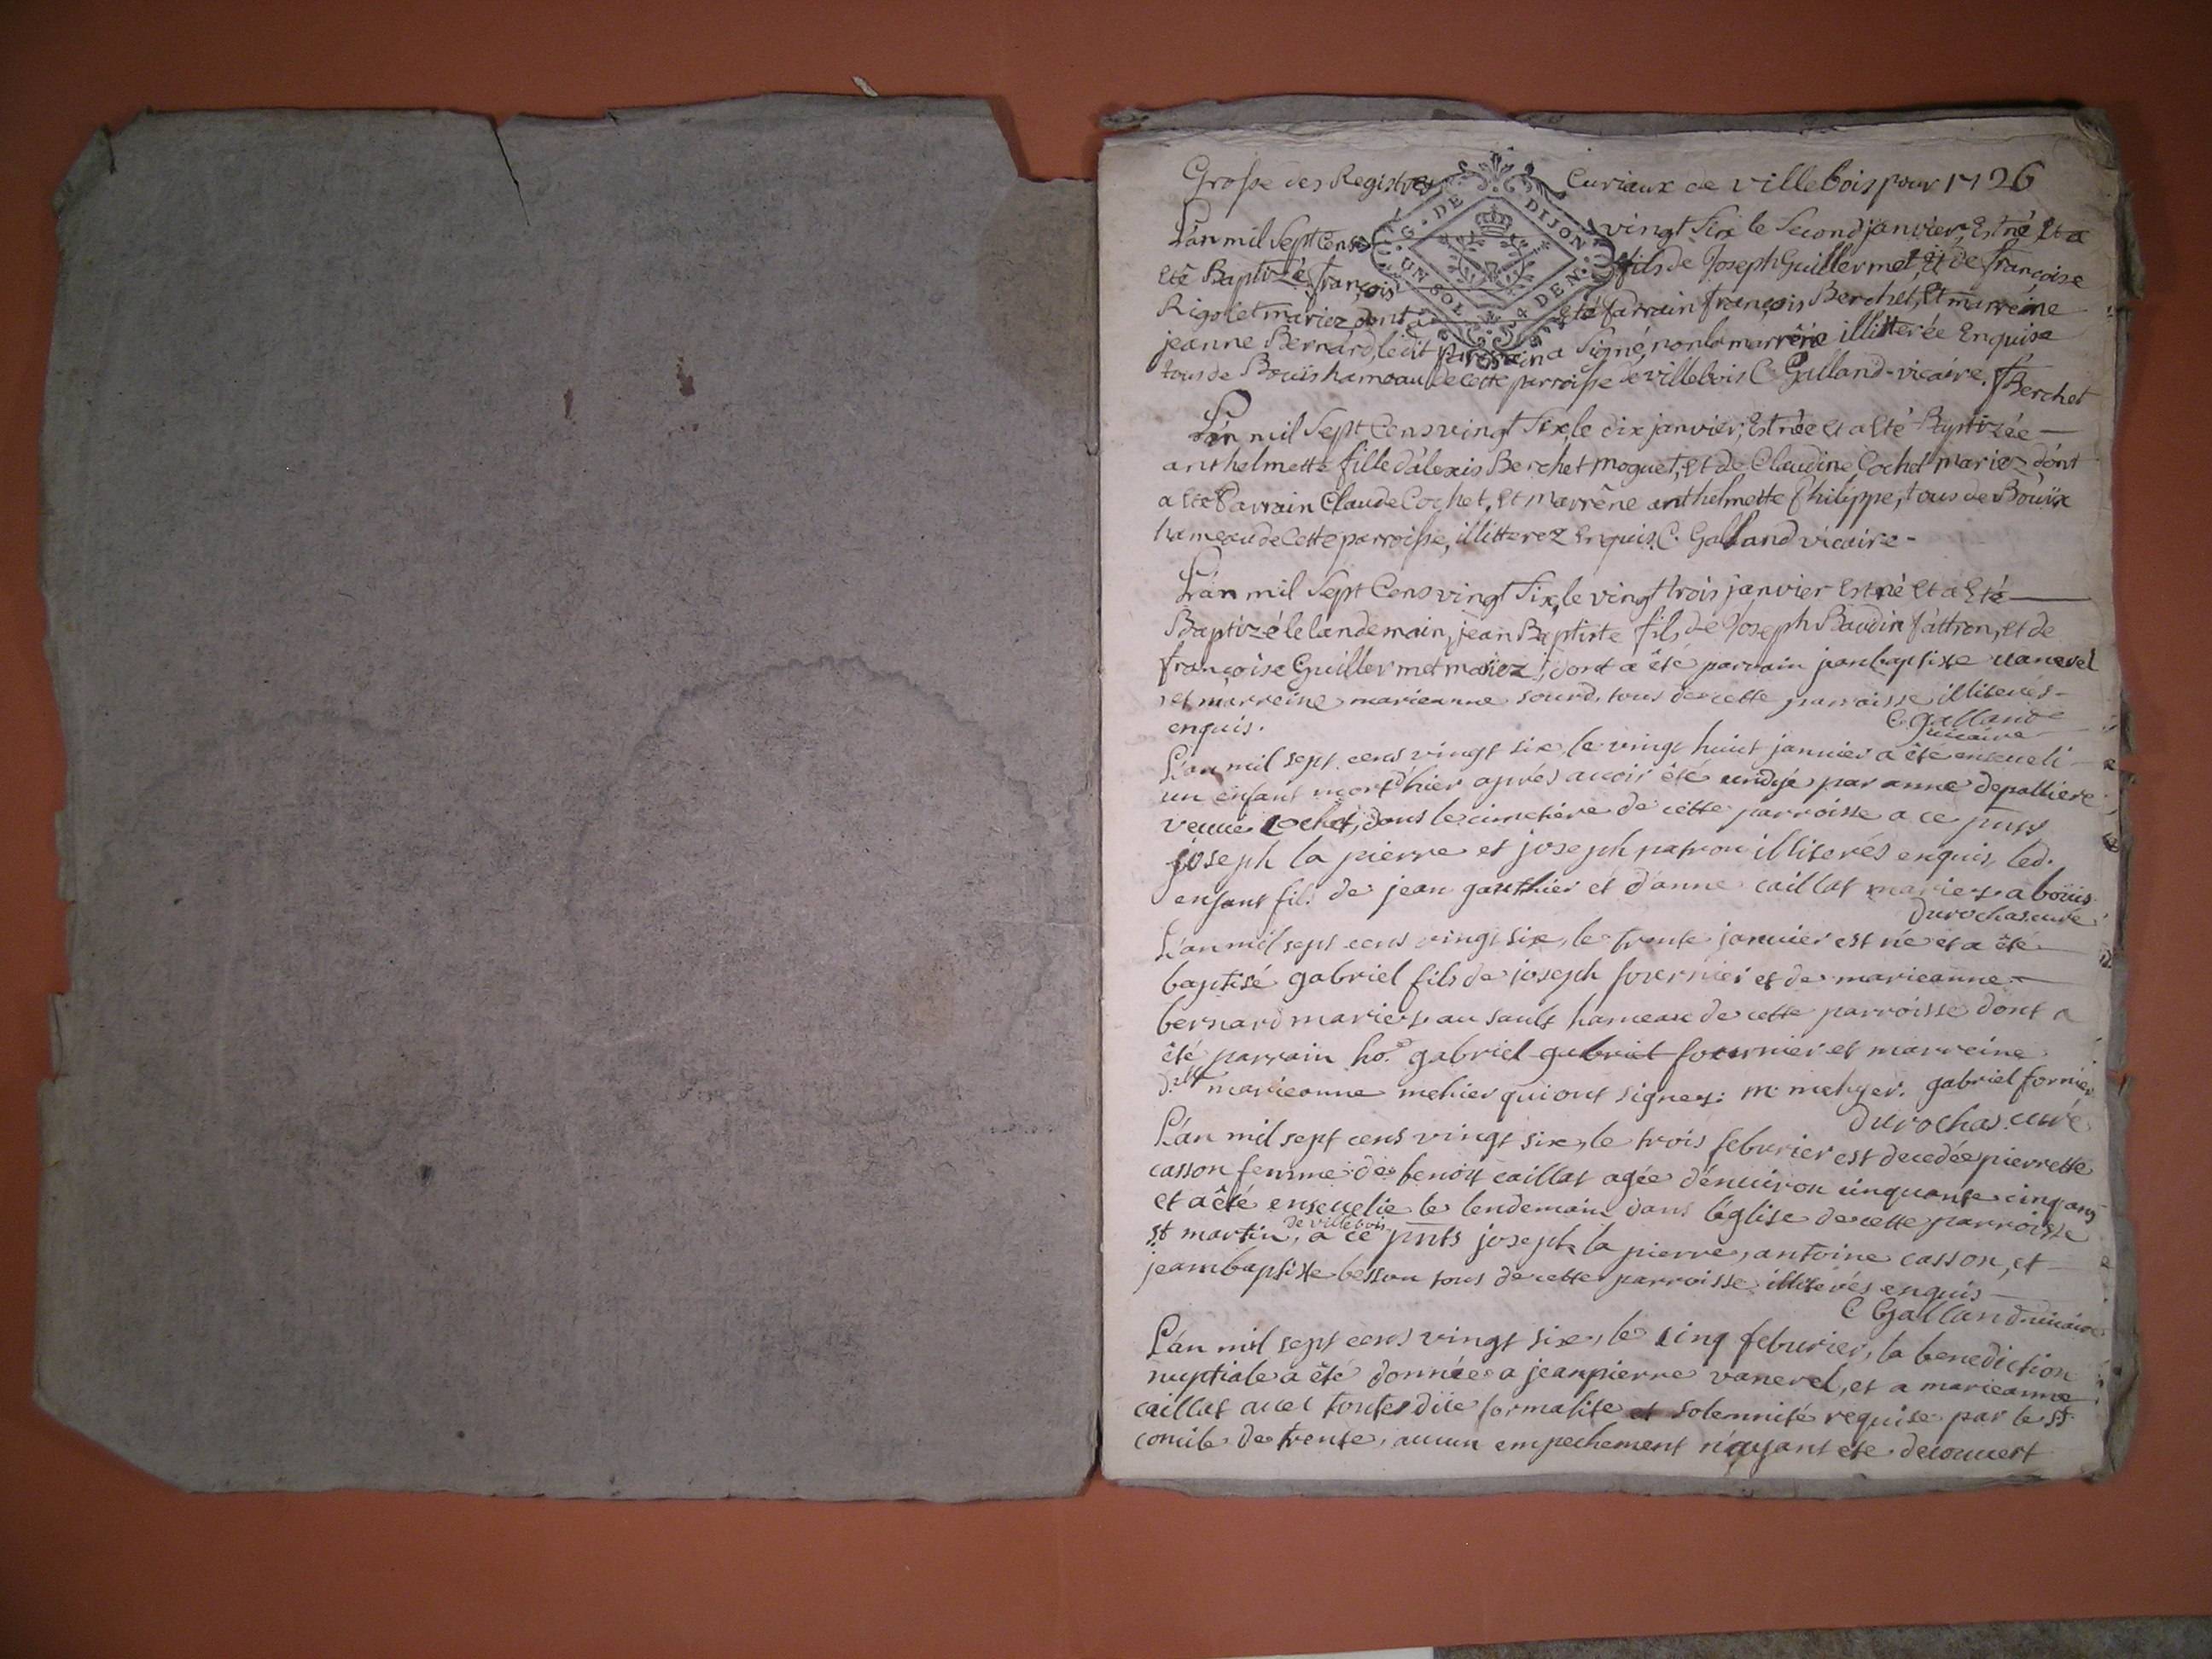 Grosse des Registres Curiaux de villebois pour 1726
G. DE DIJON
UN SOL 4 DEN.
L'an mil Sept Cens vingt Six le Second janvier, Est né Et a
Eté Baptizé françois fils de Joseph Guillermet, Et de françoise
Rigolet mariez, dont a Eté parrain françois Berchet, Et marreine
jeanne Bernard, ledit parrain a Signé, non la marrêne illitterée Enquise
tous de Bouis hameau de Cette parroisse de villebois C. Galland-vicaire. f Berchet
L'an mil Sept Cens vingt Six, le dix janvier, Est née Et a Eté Baptizée
anthelmette fille d'alexis Berchet moguet, Et de Claudine Cochet mariez dont
a Eté Parrain Claude Cochet, Et Marrêne anthelmette Philippe, tous de Bouïx
hameau de Cette parroisse, illitterez Enquis. C. Galland vicaire.
L'an mil Sept Cens vingt Six, le vingt trois janvier Est né Et a Eté
Baptizé le landemain, jean Baptiste fils de Joseph Baudin pattron, Et de
françoise Guillermet mariez, dont a êté parrain jeanbaptiste vanerel
et marreine marieanne sourd, tous de cette parroisse illiterés
enquis. C. Galland vicaire
L'an mil sept cens vingt six, le vingt huit janvier a êté enseveli
un enfant mort d'hier aprés avoir êté undoyé par anne depalliere
veuve Cochet, dans le cimetiére de cette parroisse a ce pnts
joseph la pierre et joseph patron illiterés enquis, led.
enfant fils de jean gauthier et d'anne caillat mariez a boüis
Durochas curé
L'an mil sept cens vingt six, le trente janvier est né et a êté
baptisé gabriel fils de joseph fournier et de marieanne
bernard mariez au sault hameau de cette parroisse dont a
êté parrain ho. gabriel gabriel fournier et marreine
d.lle marieanne mehier qui ont signez: m mehyer. gabriel fornier
Durochas. curé
L'an mil sept cens vingt six, le trois feburier est decedée pierrette
casson femme de benoit caillat agée d'environ cinquante cinq ans
et a êté ensevelie le lendemain dans l'église de cette parroisse
st martin, de villebois a ce pnts joseph la pierre, antoine casson, et
jeanbaptiste besson tous de cette parroisse illiterés enquis
C Galland vicaire
L'an mil sept cens vingt six, le cinq feburier, la benediction
nuptiale a êté donnée a jeanpierre vanerel, et a marieanne
caillat avec toute düe formalite et solemnité requise par le st
concile de trente, aucun empechement n'ayant eté decouvert